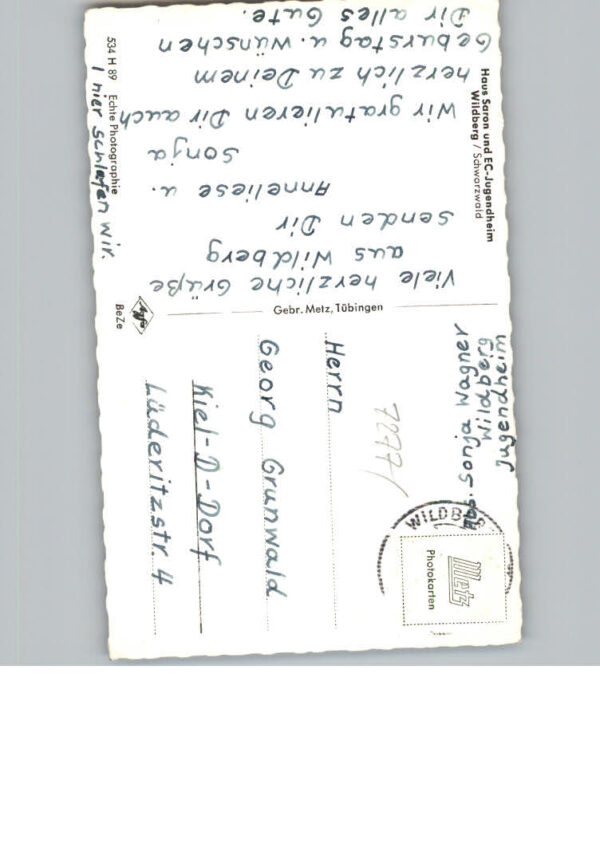 Haus Saron und EC-Jugendheim
Wildberg / Schwarzwald
Viele herzliche Grüße
aus Wildberg
senden Dir
Anneliese u.
Sonja
Wir gratulieren Dir auch
herzlich zu Deinem
Geburstag u. wünschen
Dir alles Gute.
534 H 89 Echte Photographie
1 hier schlafen wir.
Agfa
BeZe
Gebr. Metz, Tübingen
Abs. Sonja Wagner
Wildberg
Jugendheim
WILDBERG
Metz
Photokarten
7277/
Herrn
Georg Grunwald
Kiel-D-Dorf
Lüderitzstr. 4